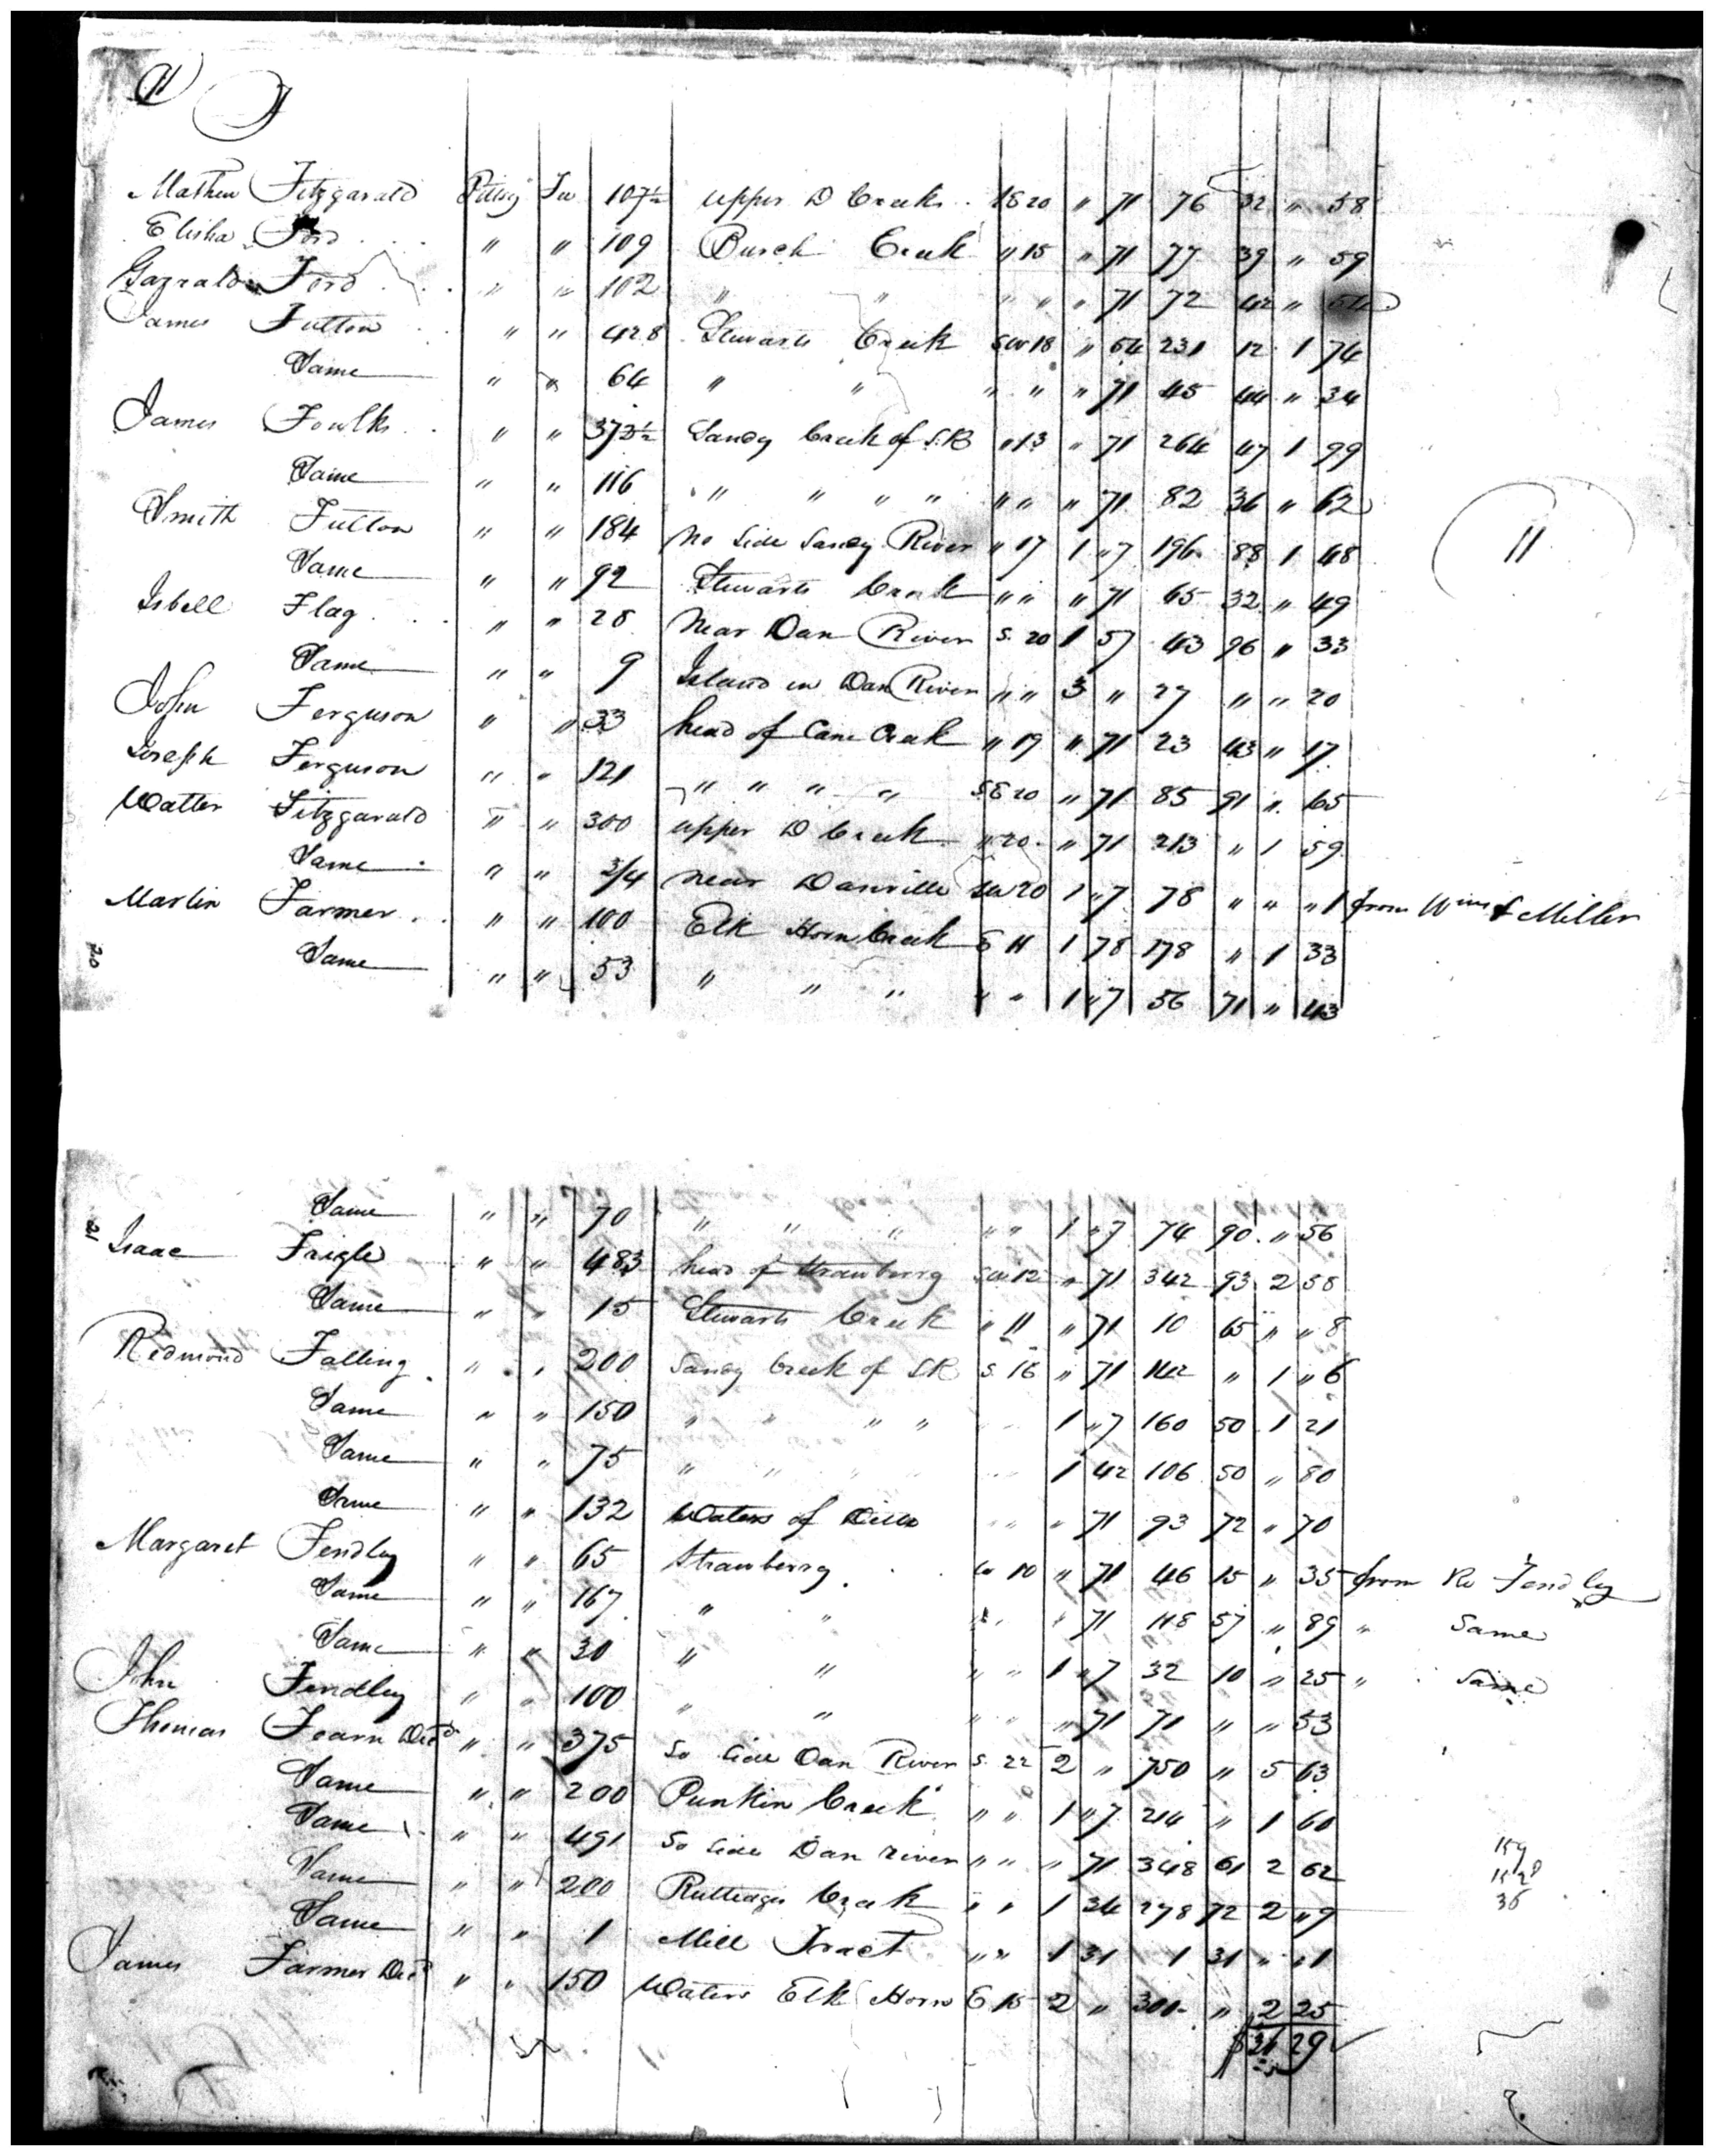 11
Mathew Fitzgarald Pittsy Fee 107½ upper D Creek SE 20 " 71 76 32 " 58
Elisha Ford " " 109 Burch Creek " 15 " 71 77 39 " 59
Gazrald Ford " " 102 " " " " " 71 72 42 "
James Fulton " " 428 Stewarts Creek SW 18 " 54 231 12 1 74
Same " " 64 " " " " " 71 45 44 " 34
James Foulks " " 373½ Sandy Creek of S.R " 13 " 71 264 47 1 99
Same " " 116 " " " " " " " 71 82 36 " 62
Smith Fulton " " 184 No Side Sandy River " 17 1 "7 196 88 1 48
11
Same " " 92 Stewarts Creek " " " 71 65 32 " 49
Isbell Flag " " 28 Near Dan River S. 20 1 57 43 96 " 33
Same " " 9 Island in Dan River " " 3 " 27 " " 20
John Ferguson " " 33 head of Cane Creek " 19 " 71 23 43 " 17
Joseph Ferguson " " 121 " " " " SE 20 " 71 85 91 " 65
Walter Fitzgarald " " 300 upper D Creek " 20 " 71 213 " 1 59
Same " " 3/4 Near Danville SW 20 1 "7 78 " " "1 from Wims & Miller
Martin Farmer " " 100 Elk Horn Creek E 11 1 78 178 " 1 33
20 Same " " 53 " " " " " 1 "7 56 71 " 43
Same " " 70 " " " " " 1 "7 74 90 " 56
21 Isaac Faigle " " 483 head of Strawberry SW 12 " 71 342 93 2 58
Same " " 15 Stewarts Creek " 11 " 71 10 65 " " 8
Redmond Falling " " 200 Sandy Creek of S.R S. 16 " 71 142 " 1 " 6
Same " " 150 " " " " " " 1 "7 160 50 1 21
Same " " 75 " " " " " " 1 42 106 50 " 80
Same " " 132 Waters of Ditto " " " 71 93 72 " 70
Margaret Fendley " " 65 Strawberry W 10 " 71 46 15 " 35 from Ro Fendley
Same " " 167 " " " " " 71 118 57 " 89 " Same
Same " " 30 " " " " 1 "7 32 10 " 25 " Same
John Fendley " " 100 " " " " " 71 71 " " 53
Thomas Fearn Decd " " 375 So Side Dan River S. 22 2 " 750 " 5 63
Same " " 200 Punkin Creek " " 1 "7 214 " 1 60
Same " " 491 So Side Dan River " " " 71 348 61 2 62
Same " " 200 Rutledges Creek " " 1 34 278 72 2 "9
36
Same " " 1 Mill Tract " " 1 31 1 31 " "1
James Farmer Decd " " 150 Waters Elk Horn E 15 2 " 300 " 2 25
$31 29